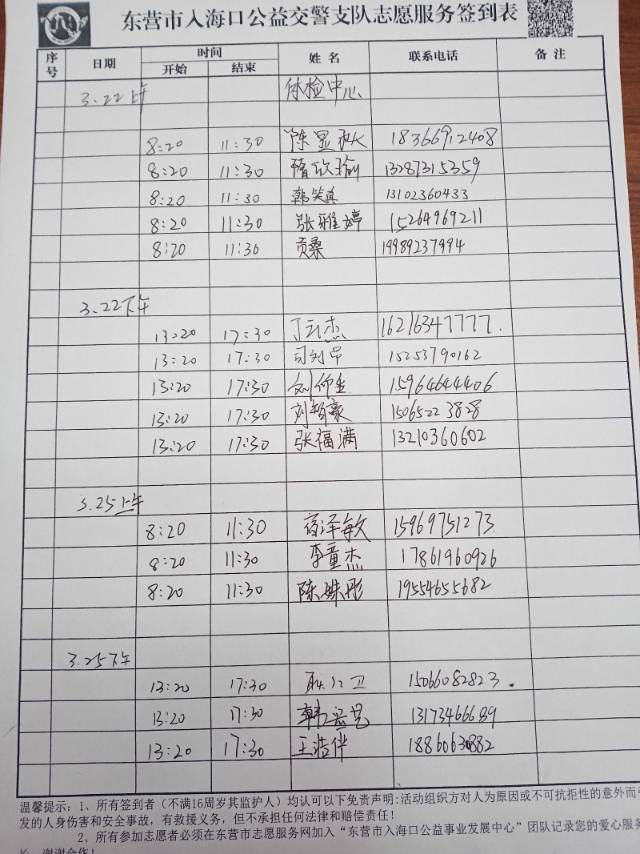 东营市入海口公益交警支队志愿服务签到表
序号 日期 时间 姓名 联系电话 备注
开始 结束
3.22上午 体检中心
8:20 11:30 陈显 18366912408
8:20 11:30 隋欣瑜 13287315359
8:20 11:30 韩笑真 13102360433
8:20 11:30 张雅婷 15264969211
8:20 11:30 贡桑 19989237994
3.22下午
13:20 17:30 丁云杰 16216347777.
13:20 17:30 15253790162
13:20 17:30 刘仰 15964644406
13:20 17:30 刘哲豪 15065223828
13:20 17:30 张福满 13210360602
3.25上午
8:20 11:30 泽敏 15969751273
8:20 11:30 李童杰 17861960926
8:20 11:30 陈姝彤 19554655682
3.25下午
13:20 17:30 卫 15066082823.
13:20 17:30 韩 13173466689
13:20 17:30 王浩伴 18860630882
温馨提示：1、所有签到者（不满16周岁其监护人）均认可以下免责声明:活动组织方对人为原因或不可抗拒性的意外而引
发的人身伤害和安全事故，有救援义务，但不承担任何法律和赔偿责任！
2、所有参加志愿者必须在东营市志愿服务网加入“东营市入海口公益事业发展中心”团队记录您的爱心服务
长，谢谢合作！